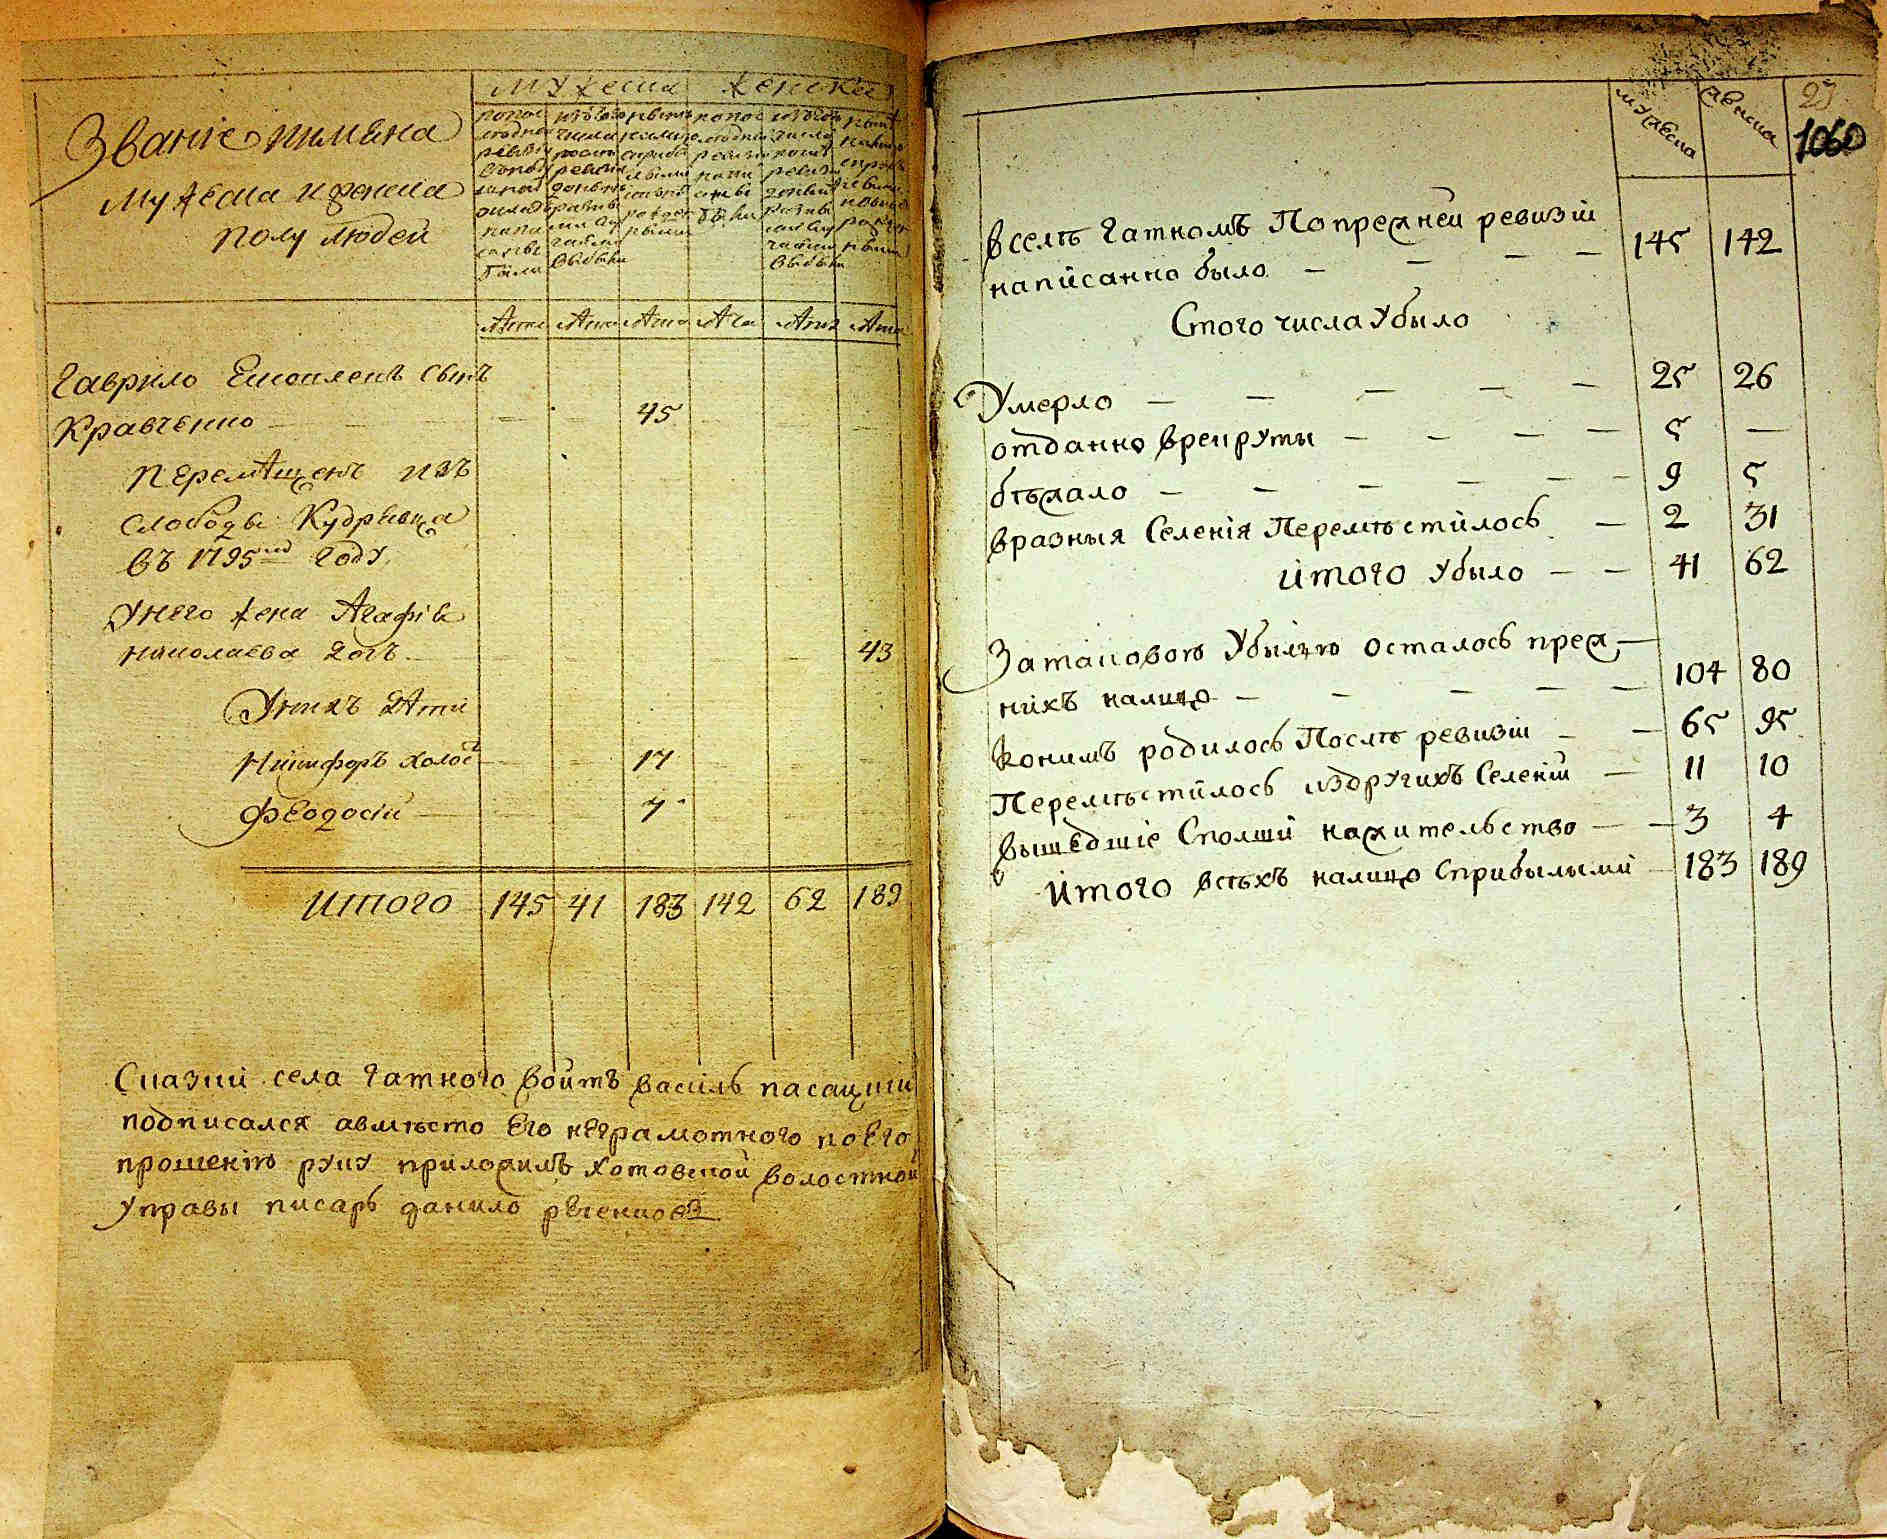 Званіе и имѣна
мужеска и женска
полу людей
мужеска женска
Лѣта Лѣта Лѣта Лѣта Лѣта Лѣта
Гаврило сынъ
Кравченко 45
перемѣщенъ изъ
слободы Кудрявца
въ 1795мъ году
Унего жена Агафія
николаева дочь 43
Унихъ дѣти
Никифоръ холос 17
Феодосій 7
Итого 145 41 183 142 62 189
Сказки села Гатного войтъ василь пасацкій
подписался авмѣсто Его нєграмотного поЕго
прошенію руку приложилъ хотовской волостной
Управы писарь данило
мужеска женска
23
1060
Вселѣ Гатномъ Попрежней ревизіи
написанно было 145 142
Стого числа Убыло
Умерло 25 26
отданно врекруты 5 —
бѣжало 9 5
вразныя Селенія Перемѣстилось 2 31
итого Убыло 41 62
Затаковою Убылью осталось преж
нихъ налицо 104 80
Конимъ родилось Послѣ ревизіи 65 95
Перемѣстилось издругихъ Селеніи 11 10
вышедшіе Сполши нажительство 3 4
итого всѣхъ налицо Сприбылыми 183 189